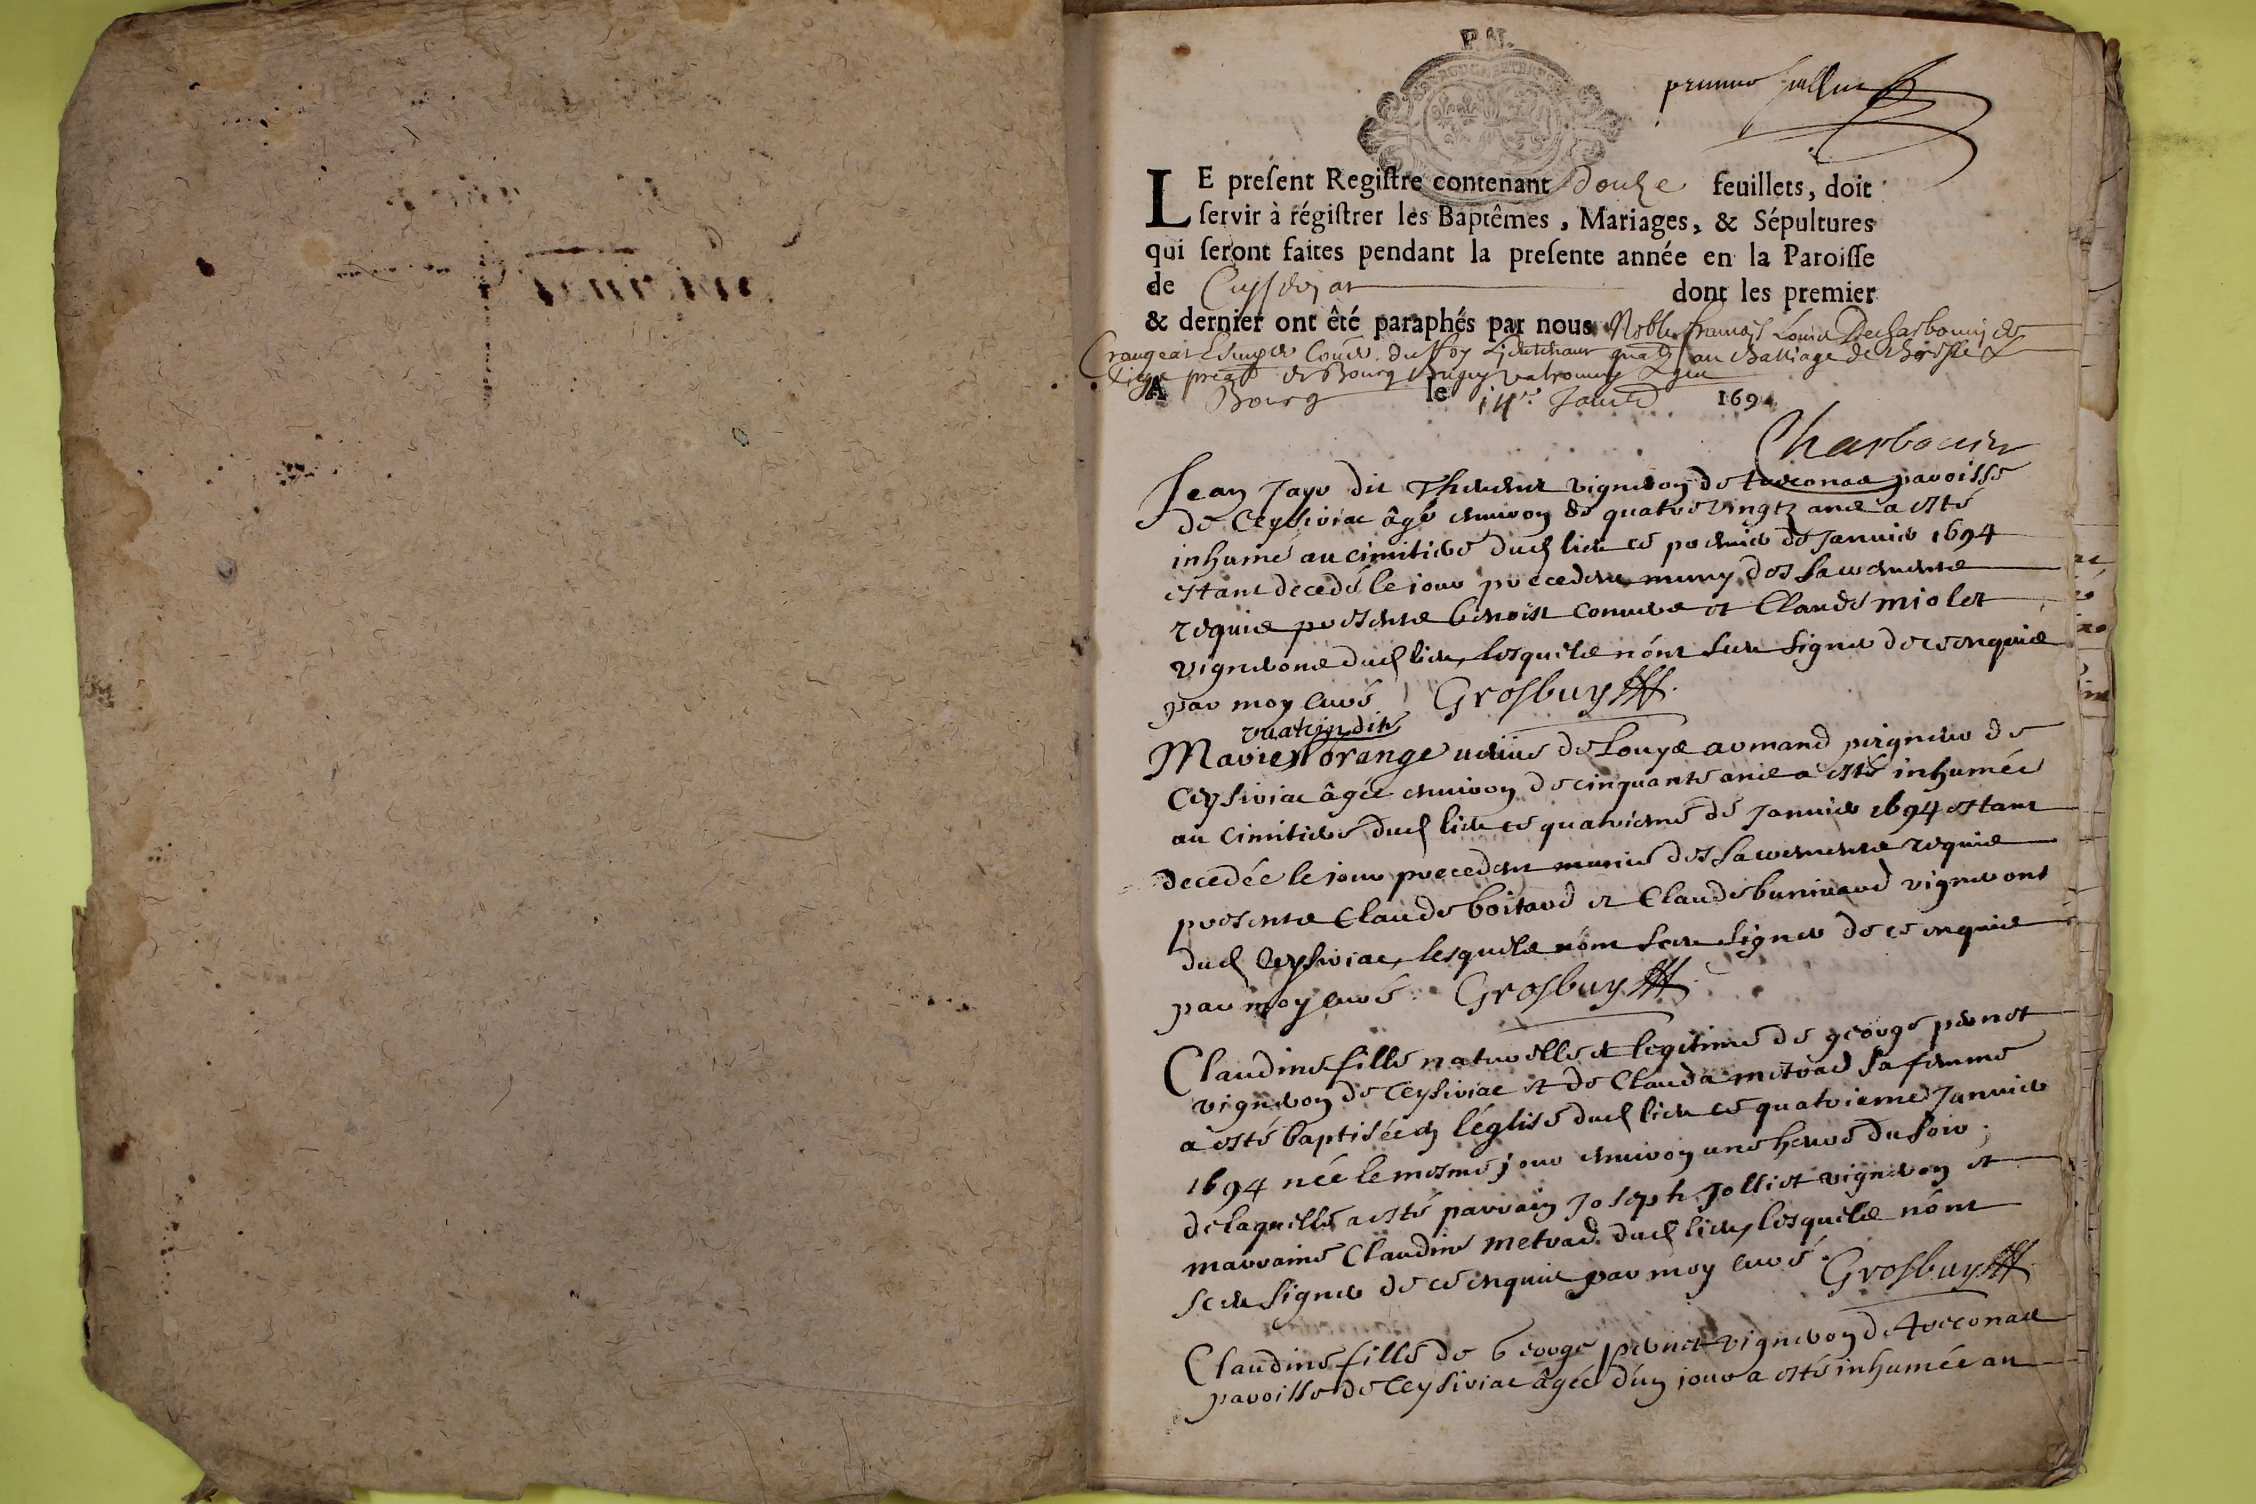 P. N.
premier feuillet
LE preſent Regiſtre contenant douze feuillets, doit
ſervir à régiſtrer les Baptêmes, Mariages, & Sépultures
qui ſeront faites pendant la preſente année en la Paroiſſe
de dont les premier
& dernier ont êté paraphés par nous Noble françois Louis Decharbonnier
Bourg
A Bourg le 14e 169
Charbonnier
Jean Jayr dit Thevenet vigneron de tresconas paroisse
de Ceysiriac âgé environ de quatre vingtz ans a esté
inhumé au cimitiere dud lieu ce premier de Janvier 1694
estant decedé le jour precedent muny des sacremens
requis presens benoist et Claude miolet
vignerons dud lieu, lesquels n'ont sceu signer de ce enquis
par moy curé Grosbuy
Marie orange veuve de Louys armand vigneron de
Ceysiriac âgée environ de cinquante ans a esté inhumée
au cimitiere dud lieu ce quatrieme de Janvier 1694 estant
decedée le jour precedent munie des sacremens requis
presens Claude boitard et Claude vignerons
dud Ceysiriac, lesquels n'ont sceu signer de ce enquis
par moy curé. Grosbuy
Claudine fille naturelle et legitime de george pernet
vigneron de Ceysiriac et de Clauda metrad sa femme
a esté baptisée en l'églisé dud lieu ce quatrieme Janvier
1694 née le mesme jour environ une heure du soir;
de laquelle a esté parrain Joseph Jolliet vigneron et
marraine Claudine metrad dud lieu, lesquels n'ont
sceu signer de ce enquis par moy curé. Grosbuy
Claudine fille de George pernet vigneron de tresconas
paroisse de Ceysiriac âgée d'un jour a esté inhumée au